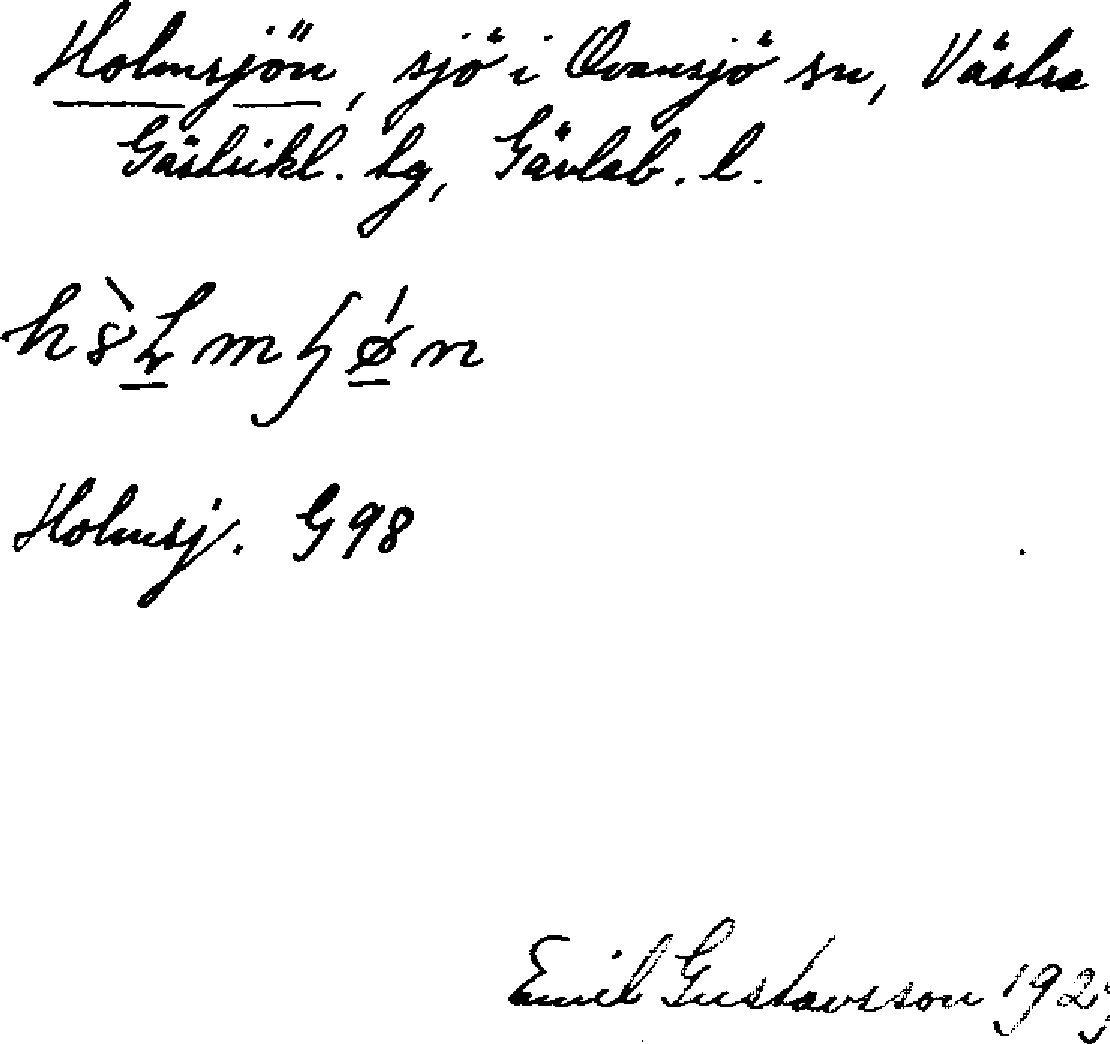 Holmsjön, sjö i Ovansjö sn, Västra
Gästrikl. tg, Gävleb. l.
Holmsj. G 98
Emil Gustavsson